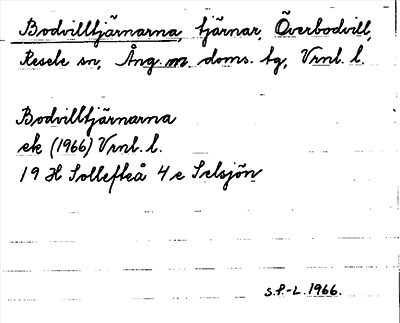 Bodvilltjärnarna, tjärnar, Överbodvill,
Resele sn, Ång. m. doms. tg, Vrnl. l.
Bodvilltjärnarna
ek (1966) Vrnl. l.
19 H Sollefteå 4 e Selsjön
S.P-L. 1966.